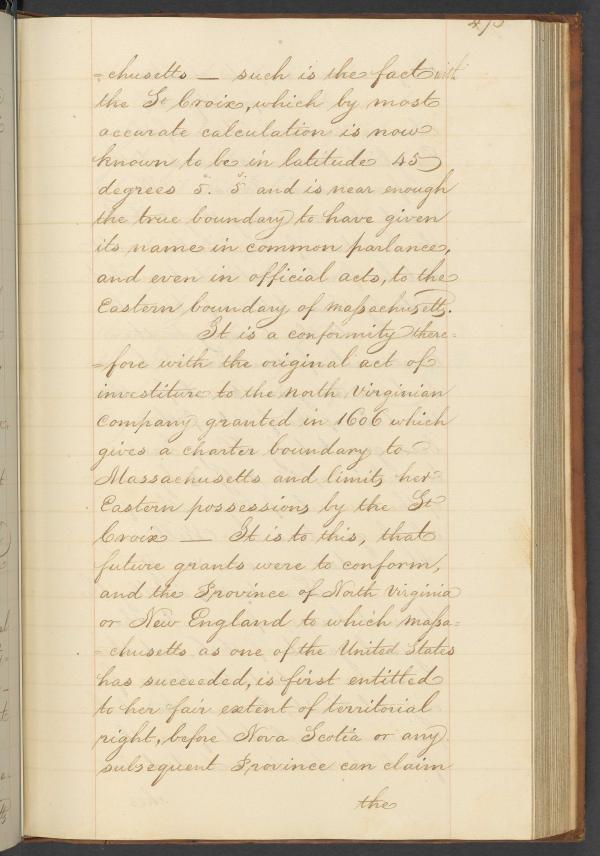 =chusetts — such is the fact with
the St Croix, which by most
accurate calculation is now
known to be in latitude 45
degrees 5. 5 and is near enough
the true boundary to have given
its name in common parlance,
and even in official acts, to the
Eastern boundary of maſsachusetts.
It is a conformity there=
=fore with the original act of
investiture to the north virginian
company granted in 1606 which
gives a charter boundary to
Massachusetts and limits her
Eastern possessions by the St
Croix — It is to this, that
future grants were to conform,
and the Province of North Virginia
or New England to which maſsa=
=chusetts as one of the United States
has succeeded, is first entitled
to her fair extent of territorial
right, before Nova Scotia or any
subsequent Province can claim
the